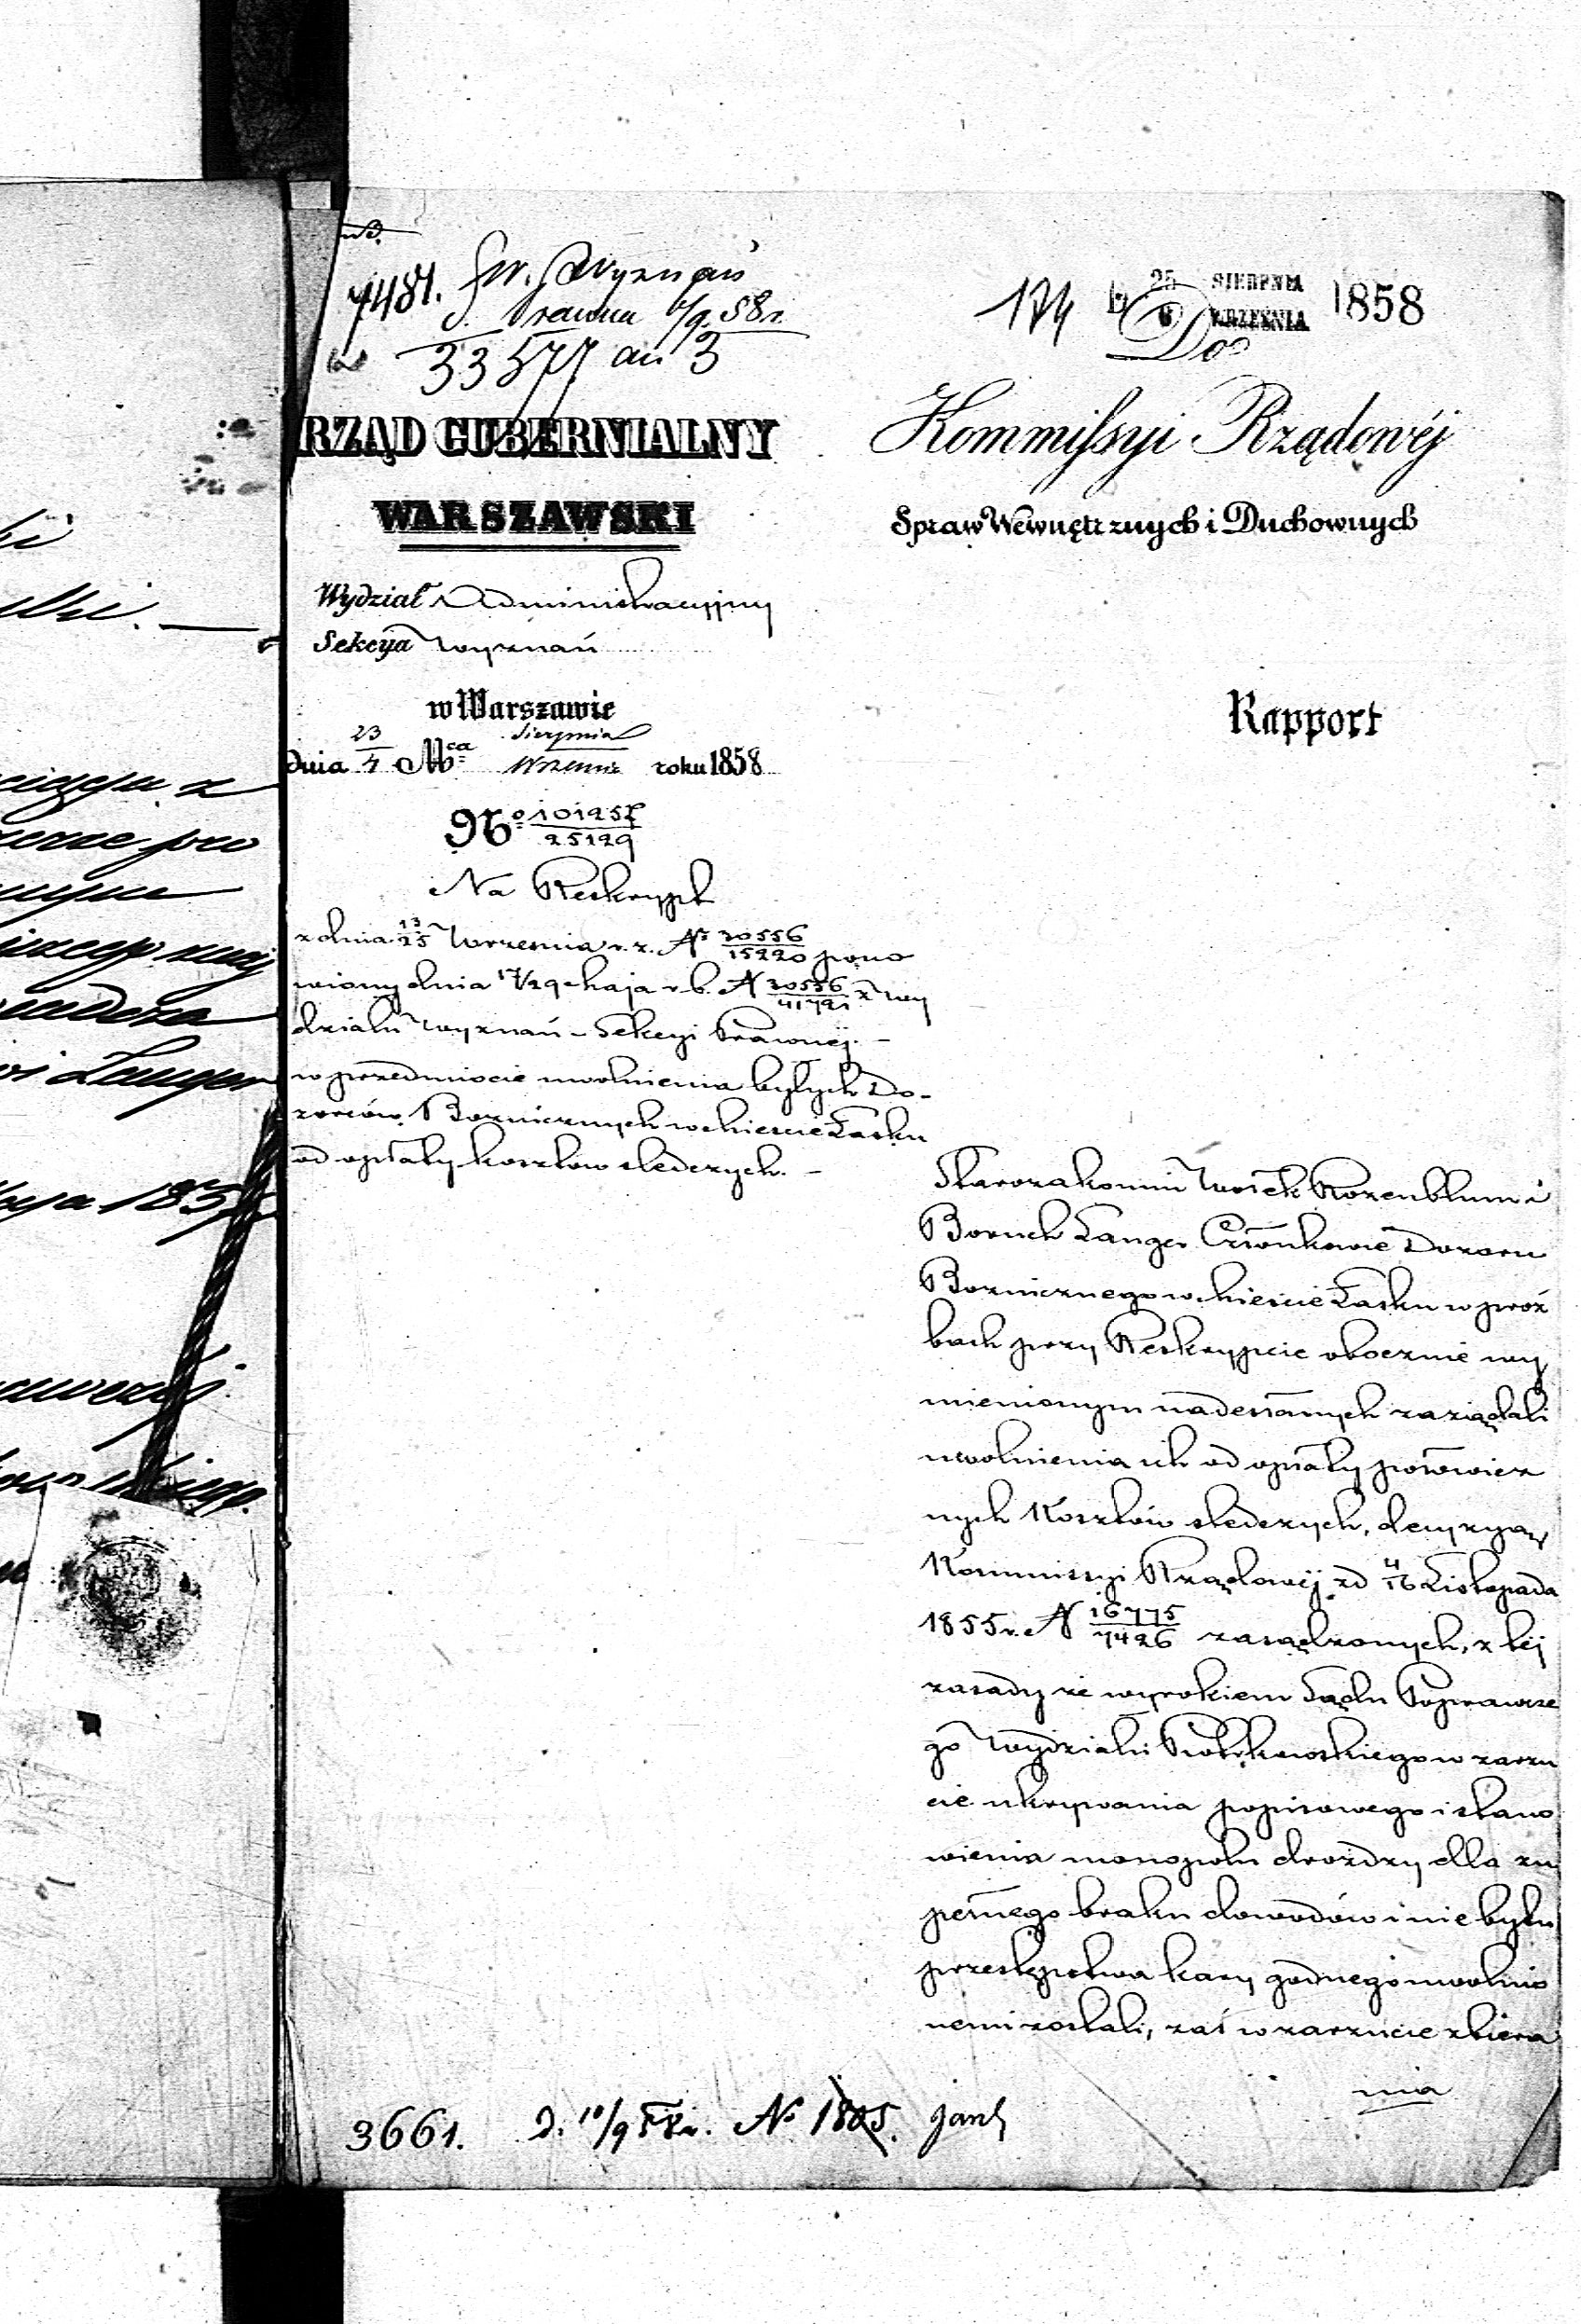 7481.
33577 an 3
174 25 SIERPNIA 1858
6 WRZEŚNIA
Do
RZĄD GUBERNIALNY
WARSZAWSKI
Wydział Administracyjny
Sekcyja Wyznań
w Warszawie
dnia 23/4 Mca Sierpnia/Września roku 1858
No 101257/25129
Na Reskrypt
z dnia 13/25 Września r. z. No 30556/15220 pono
wiony dnia 17/29 Maja r. b. N 30556/41721 z Wy
działu Wyznań - Sekcyi Prawnej. -
w przedmiocie uwolnienia byłych Do-
zorców Bożnicznych w Mieście Łasku
od opłaty kosztów śledczych. -
Kommissyi Rządowéj
Spraw Wewnętrznych i Duchownych
Rapport
Starozakonni Wosek Rozenblum i
Boruch Langer Członkowie Dozoru
Bożnicznego w Mieście Łasku w proź
bach przy Reskrypcie obocznie wy
mienionym nadesłanych zażądali
uwolnienia ich od opłaty połowicz
nych Kosztów śledczych, decyzyą
Kommissyi Rządowéj z d 4/16 Listopada
1855 r. N 16775/7426 zasądzonych, z téj
zasady że wyrokiem Sądu Poprawcze
go Wydziału Piotrkowskiego w zarzu
cie ukrywania popisowego i stano
wienia monopolu drożdży dla zu
pełnego braku dowodów i nie bytu
przestępstwa kary godnego uwolnio
nemi zostali, zaś w zarzucie zbiera
nia
3661. D. 10/9 58 r. No 1805.
ciągu z
Langer
Maja 185